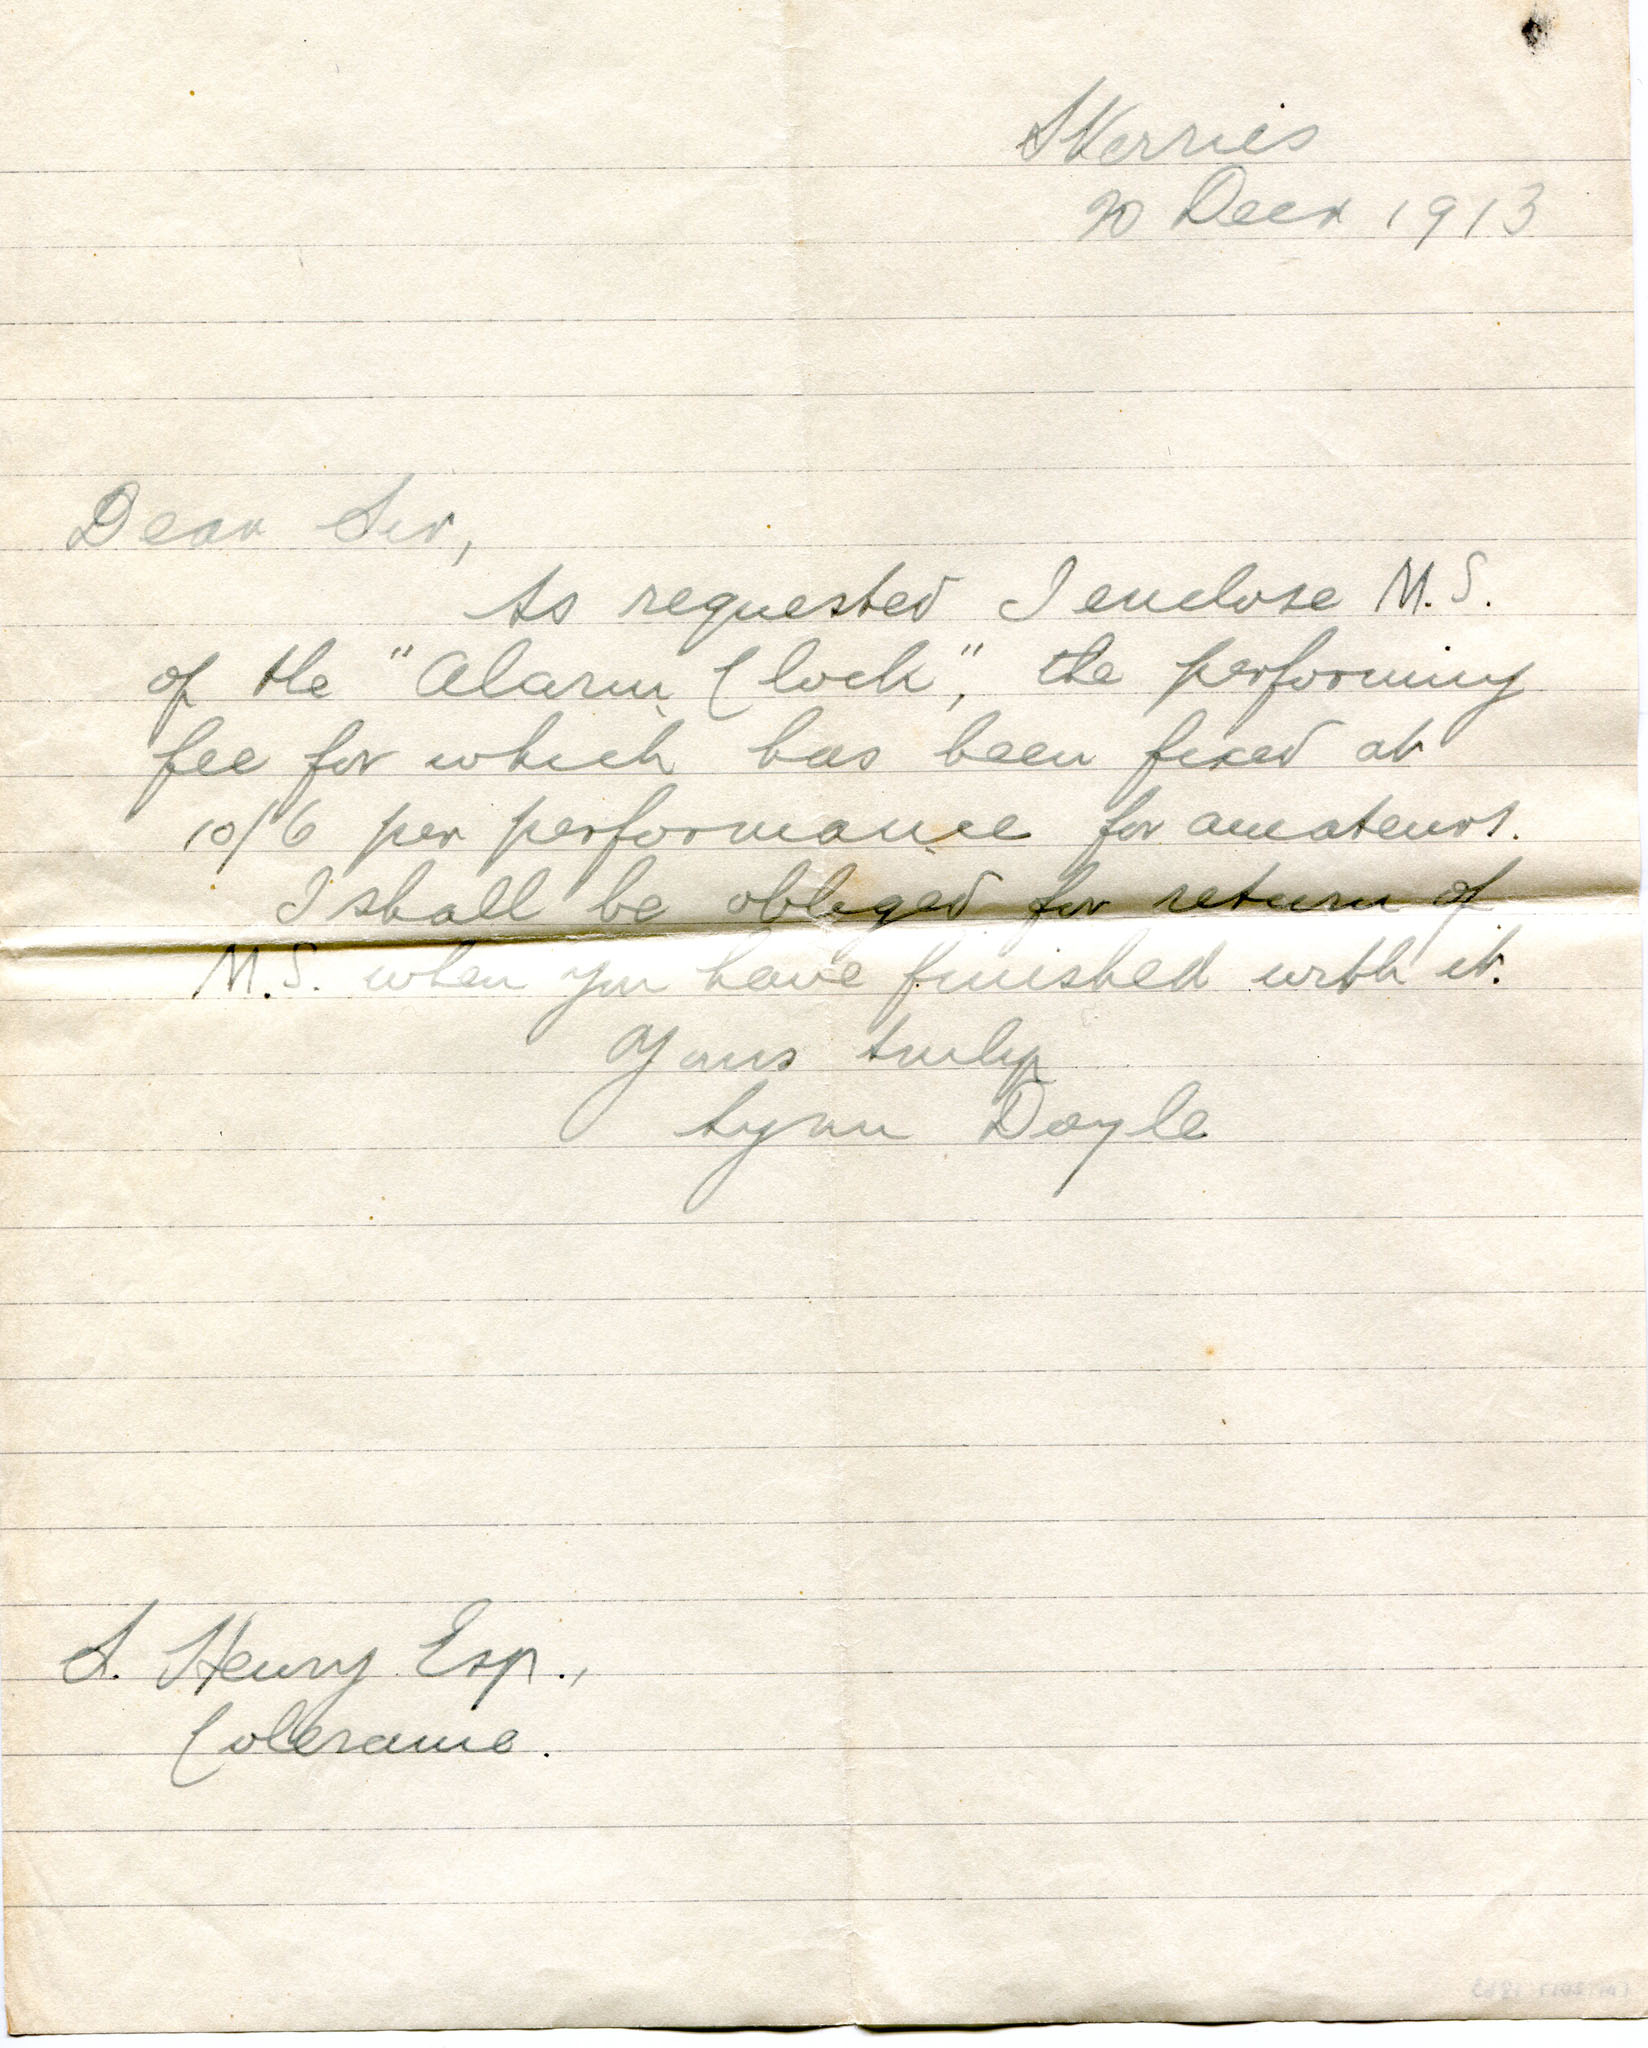 Skerries
20 Decr 1913
Dear Sir,
As requested I enclose M.S.
of the "Alarm Clock", the performing
fee for which has been fixed at
10/6 per performance for amateurs.
I shall be obliged for return of
M.S. when you have finished with it.
Yours truly
Lynn Doyle
S. Henry Esq.,
Coleraine.